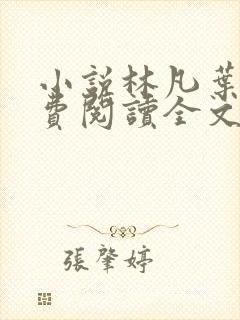 小說林凡葉
費閱讀全文
張肇婷